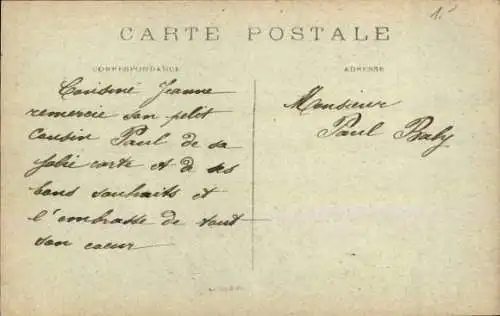 1.-
CARTE POSTALE
CORRESPONDANCE
ADRESSE
Cousine Jeanne
remercie son petit
Cousin Paul de sa
jolie carte et de ses
bons souhaits et
l'embrasse de tout
son coeur
Monsieur
Paul Baby